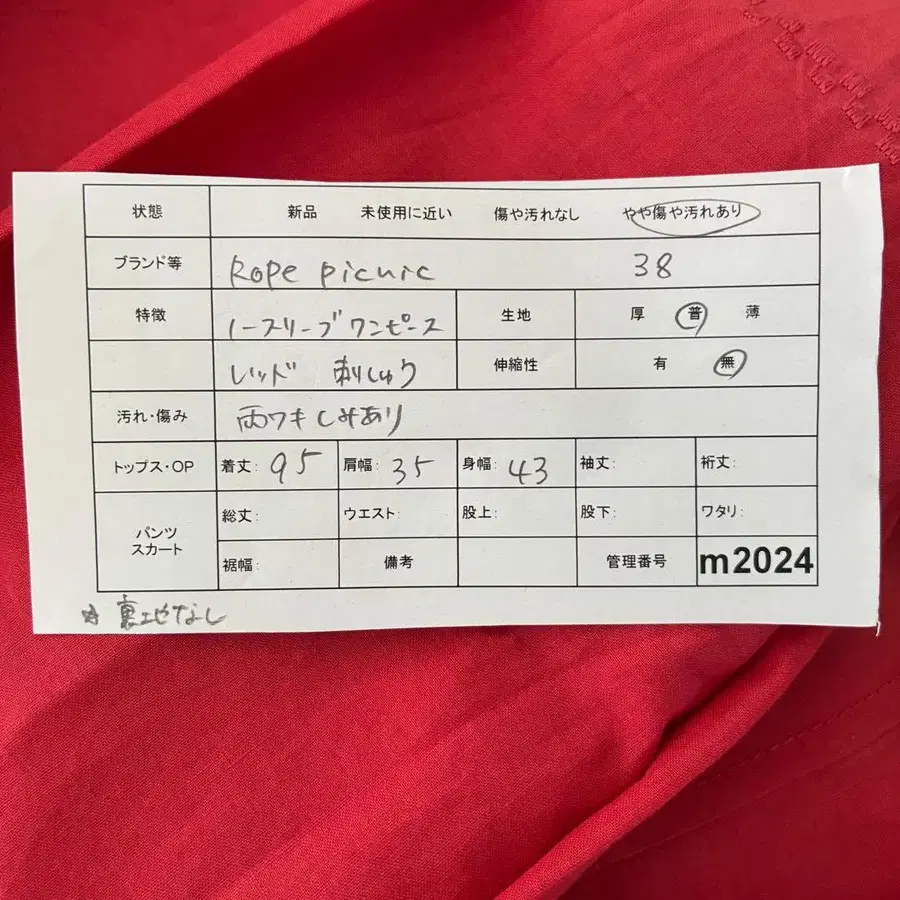 状態 新品 未使用に近い 傷や汚れなし やや傷や汚れあり
ブランド等 Rope picnic 38
特徴 ノースリーブワンピース 生地 厚 普 薄
レッド 刺しゅう 伸縮性 有 無
汚れ・傷み 両ワキしみあり
トップス・OP 着丈: 95 肩幅: 35 身幅: 43 袖丈: 裄丈:
パンツ スカート 総丈: ウエスト: 股上: 股下: ワタリ:
裾幅: 備考 管理番号 m2024
☆ 裏地なし